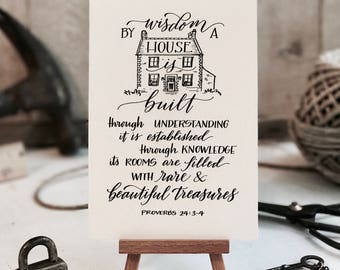 BY wisdom A
HOUSE
is
built
through UNDERSTANDING
it is established
through KNOWLEDGE
its ROOMS are filled
WITH rare &
beautiful treasures
PROVERBS 24:3-4